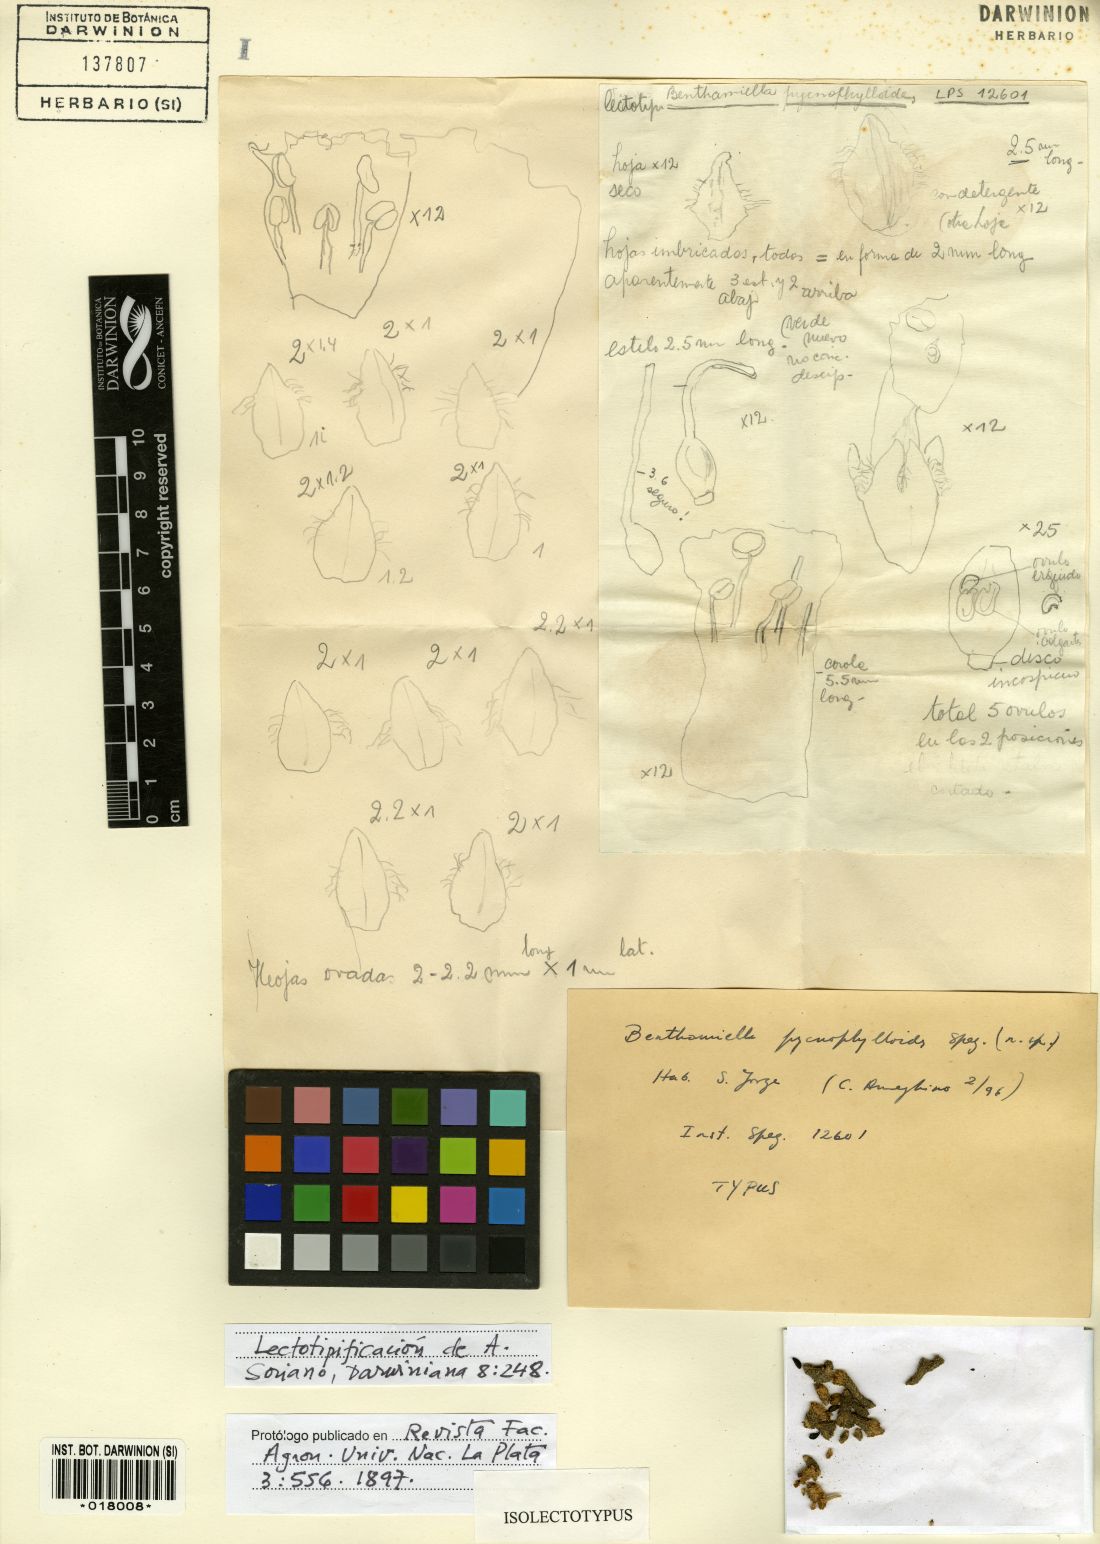 INSTITUTO DE BOTÁNICA
DARWINION
137807
HERBARIO (SI)
I
DARWINION
HERBARIO
lectotipo Benthamiella pycnophylloides LPS 12601
hoja x12
seco
2.5 mm
long-
con detergente
x12
(otra hoja
hojas imbricadas, todas = en forma de 2 mm long
aparentemente 3 est. y 2 arriba
abajo
estilo 2.5 mm long-
(verde
nuevo
no conc.
descrip-
x12
-3.6
seguro!
x12
x25
ovulo
erguido
ovulo
colgante
disco
incospicuo
total 5 ovulos
en las 2 posiciones
cortado-
corola
5.5 mm
long-
x12
x12
2 x 1
2 x 1
2 x 1.4
1i
2 x 1.2
1.2
2 x 1
1
2.2 x 1
2 x 1
2 x 1
2.2 x 1
2 x 1
Hojas ovadas 2-2.2 mm long x 1 mm lat.
Benthamiella pycnophylloides Speg. (n. sp.)
Hab. S. Jorge (C. Ameghino 2/96)
Inst. Speg. 12601
TYPUS
INSTITUTO DE BOTANICA
DARWINION
CONICET - ANCEFN
copyright reserved
0 1 2 3 4 5 6 7 8 9 10
cm
Lectotipificación de A.
Soriano, Darwiniana 8:248.
Protólogo publicado en Revista Fac.
Agron. Univ. Nac. La Plata
3:556. 1897.
ISOLECTOTYPUS
INST. BOT. DARWINION (SI)
*018008*